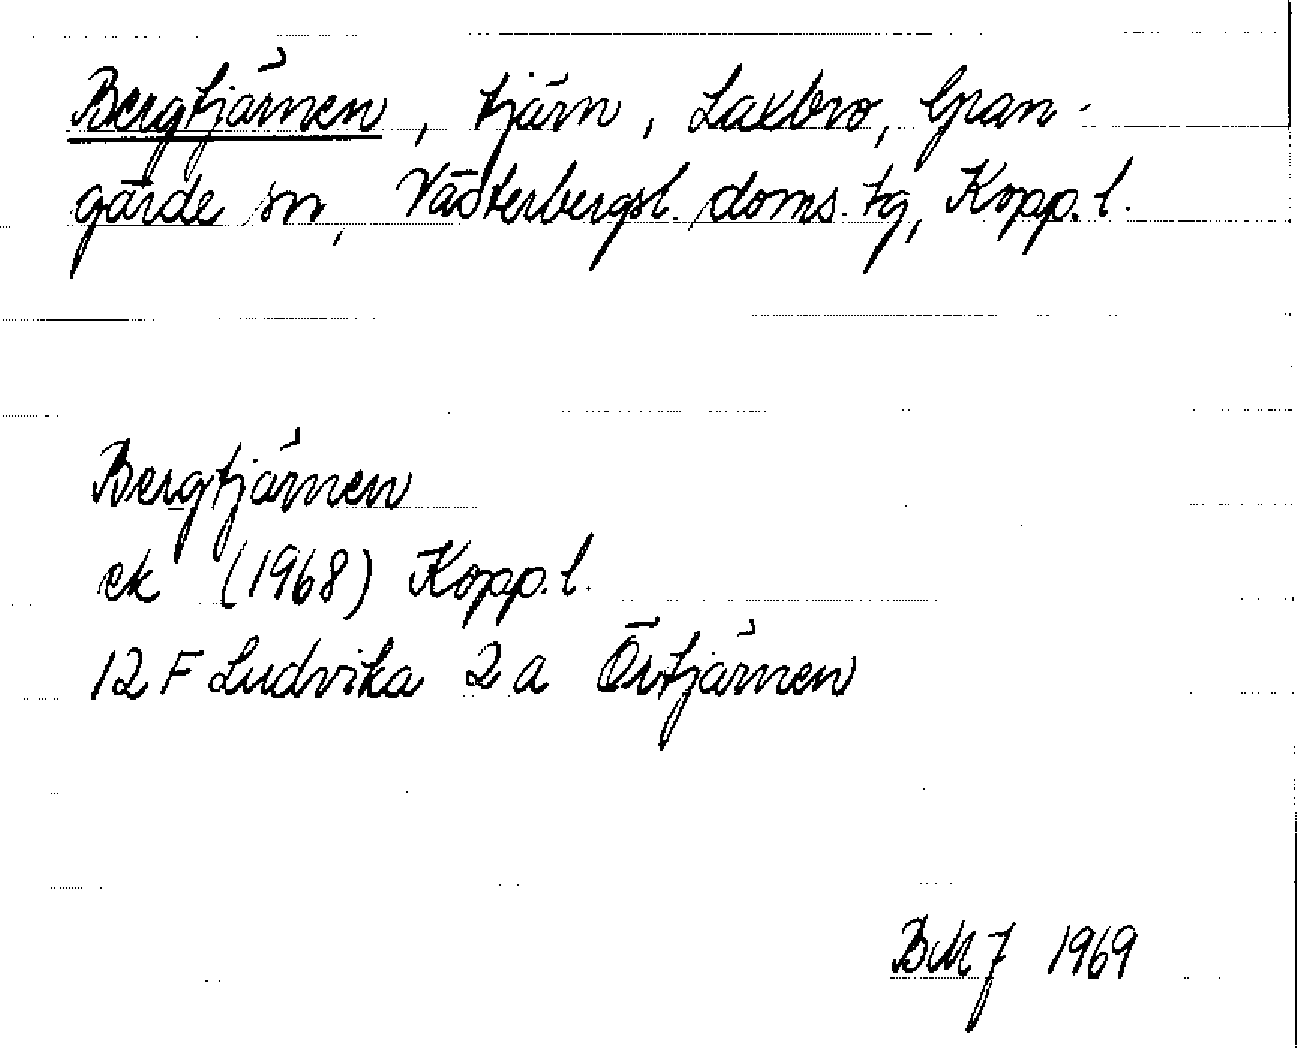 Bergtjärnen, tjärn, Laxbro, Gran-
gärde sn, Västerbergsl. doms. tg, Kopp. l.
Bergtjärnen
ek (1968) Kopp. l.
12 F Ludvika 2 a Övtjärnen
BMJ 1969